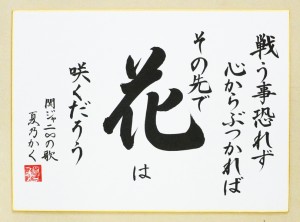 戦う事恐れず
心からぶつかれば
その先で
花は
咲くだろう
関ジャニ∞の歌
夏乃かく